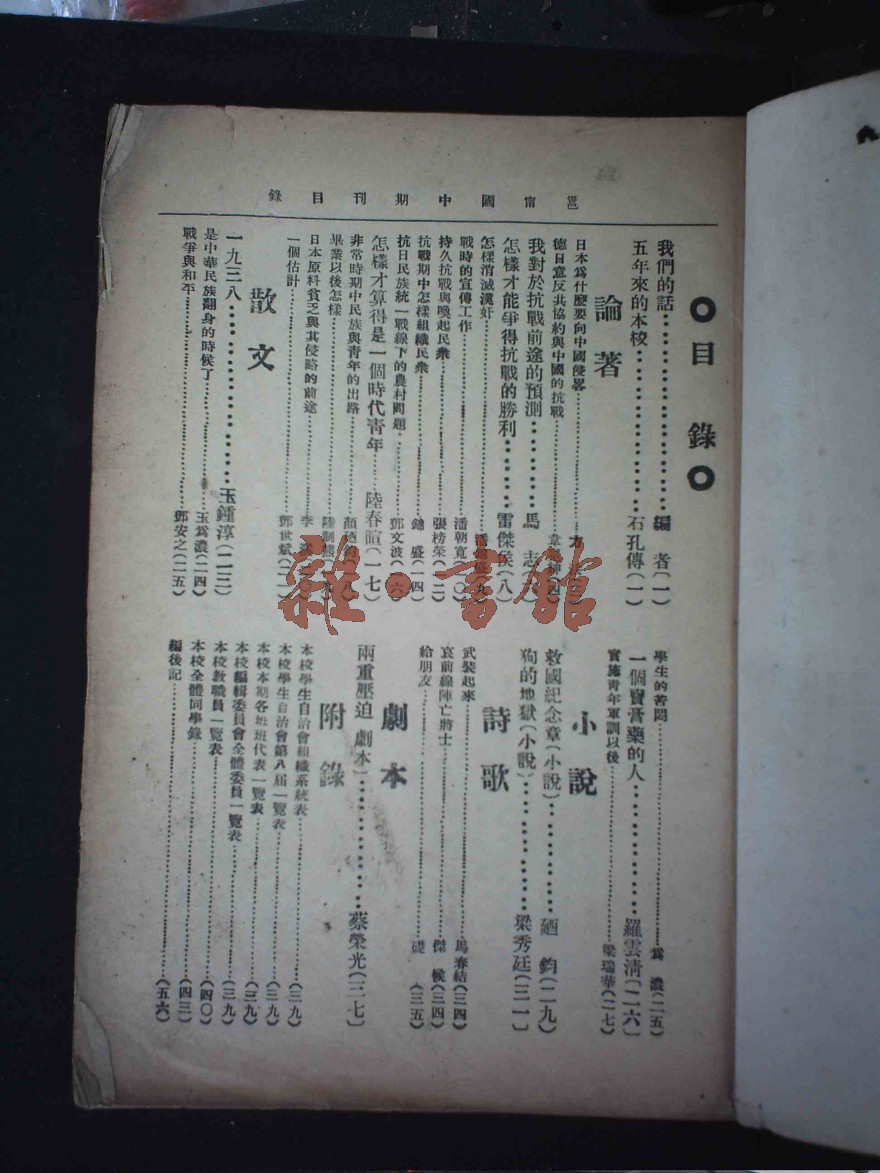 邕甯國中期刊目錄
目錄
我們的話 編者(一)
五年來的本校 石孔傳(一)
論著
日本爲什麼要向中國侵畧 方
德日意反共協約與中國的抗戰 韋
我對於抗戰前途的預測 馬志
怎樣才能爭得抗戰的勝利 雷傑侯(八)
怎樣消滅漢奸
戰時的宣傳工作 潘朝寬(一〇)
持久抗戰與喚起民衆 張榜榮(一二)
抗戰期中怎樣組織民衆 盛(一四)
抗日民族統一戰線下的農村問題 鄧文波(一六)
怎樣才算得是一個時代青年 陸春暄(一七)
非常時期中民族與青年的出路 顏
畢業以後怎樣 陸制盤
日本原料貧乏與其侵略的前途 李
一個估計 鄧世斌(二二)
散文
一九三八 玉鍾淳(二三)
是中華民族翻身的時候了 玉爲濃(二四)
戰爭與和平 鄧安之(二五)
學生的苦悶 爲濃(二五)
一個賣膏藥的人 羅雲清(二六)
實施青年軍訓以後 梁瑞華(二七)
小說
救國紀念章(小說) 廼鈞(二九)
狗的地獄(小說) 梁秀廷(三一)
詩歌
武裝起來 馬春結(三四)
哀前線陣亡將士 傑候(三四)
給朋友 礎(三五)
劇本
兩重壓迫 劇本) 蔡榮光(三七)
附錄
本校學生自治會組織系統表 (三九)
本校學生自治會第八届一覽表 (三九)
本校本期各班班代表一覽表 (三九)
本校編輯委員會全體委員一覽表 (三九)
本校教職員一覽表 (四〇)
本校全體同學錄 (四三)
編後記 (五六)
雜·書館